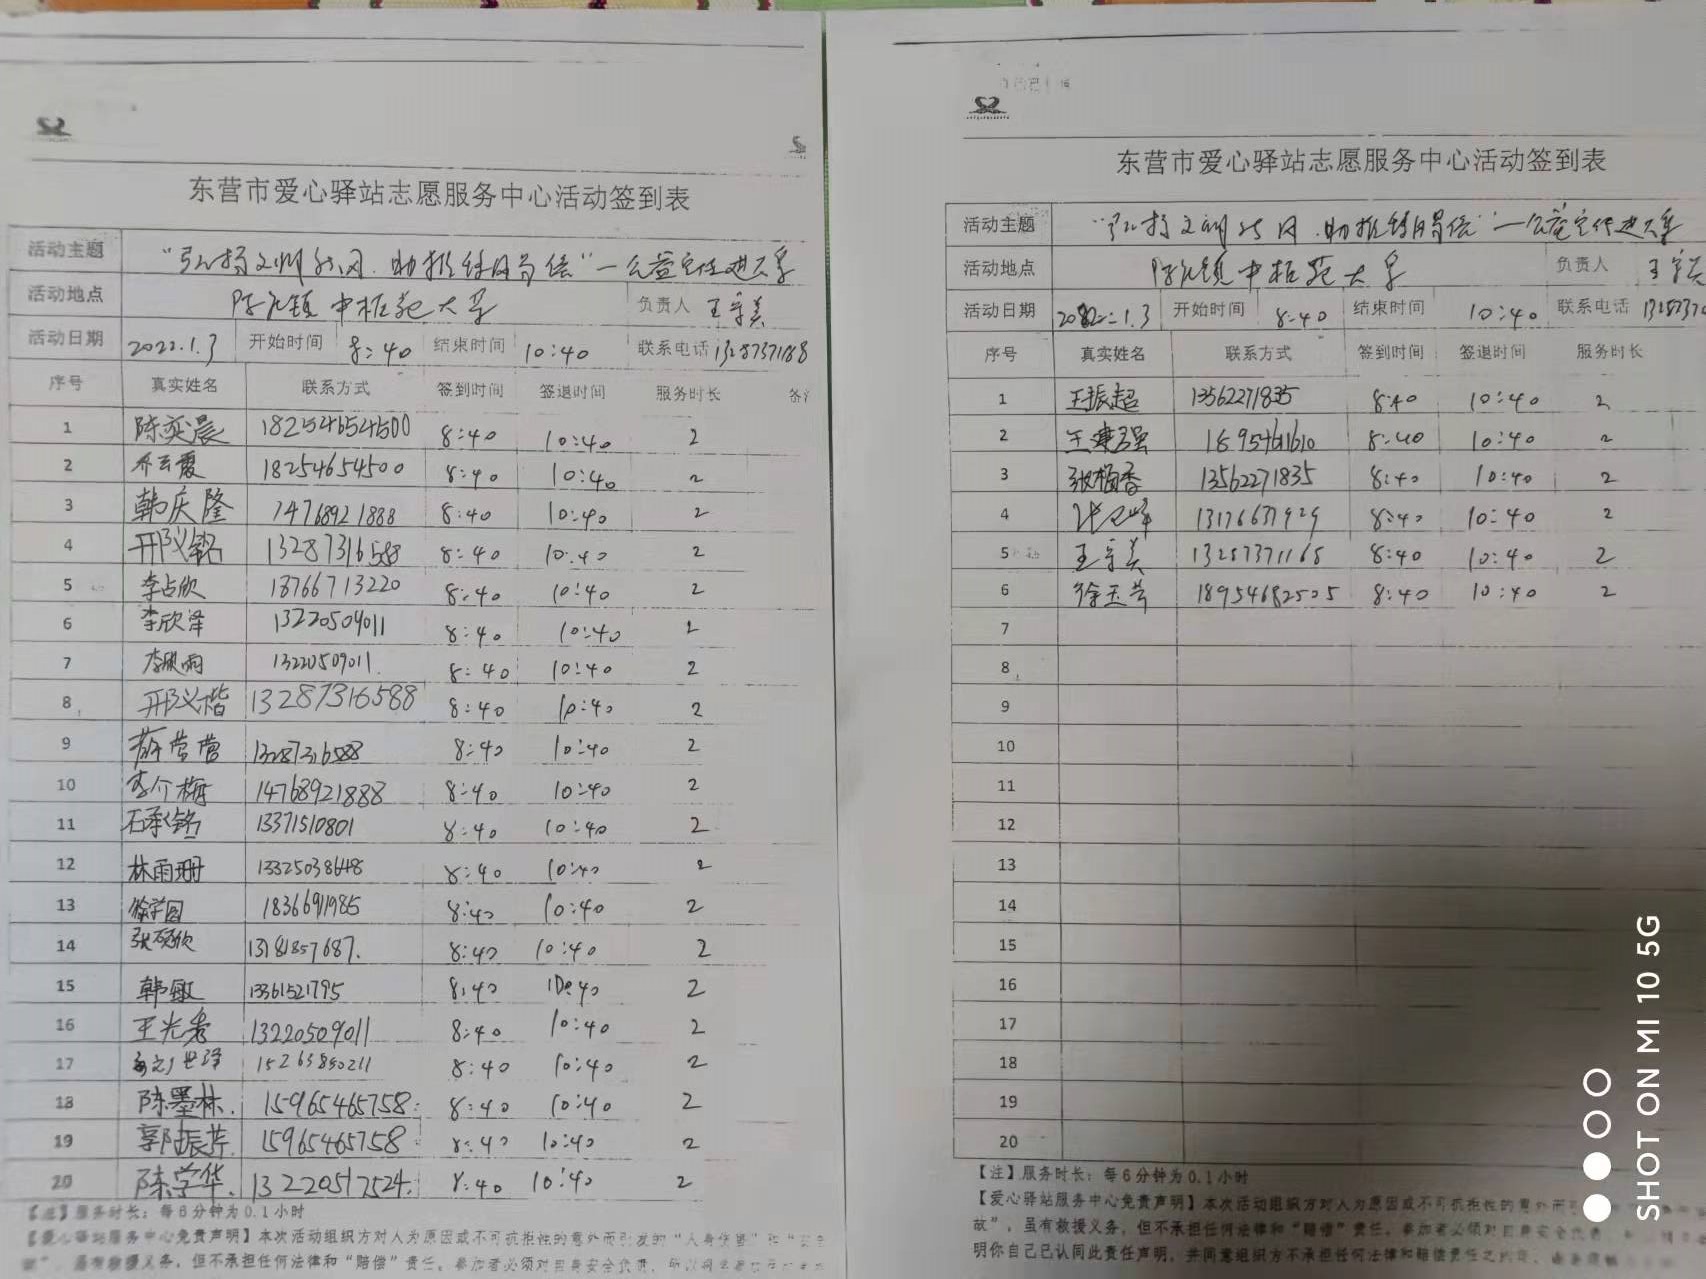 东营市爱心驿站志愿服务中心活动签到表
活动主题
活动地点 负责人 王守美
活动日期 2022.1.3 开始时间 8:40 结束时间 10:40 联系电话
序号 真实姓名 联系方式 签到时间 签退时间 服务时长
1 陈奕晨 18254654500 8:40 10:40 2
2 乔云霞 18254654500 8:40 10:40 2
3 韩庆隆 14768921888 8:40 10:40 2
4 邢义铭 13287316588 8:40 10:40 2
5 李占欣 13766713220 8:40 10:40 2
6 李欣泽 13220509011 8:40 10:40 2
7 李欣雨 13220509011 8:40 10:40 2
8 邢义楷 13287316588 8:40 10:40 2
9 薛营营 13287316588 8:40 10:40 2
10 李介梅 14768921888 8:40 10:40 2
11 石承铭 13371510801 8:40 10:40 2
12 林雨珊 13325038648 8:40 10:40 2
13 18366911985 8:40 10:40 2
14 张硕欣 13181857687. 8:40 10:40 2
15 韩敏 13361521795 8:40 10:40 2
16 王光秀 13220509011 8:40 10:40 2
17 15263850211 8:40 10:40 2
18 陈墨林. 15965465758. 8:40 10:40 2
19 郭振芹 15965465758 8:40 10:40 2
20 陈学华. 13220517524. 8:40 10:40 2
【注】服务时长：每6分钟为0.1小时
【爱心驿站服务中心免责声明】本次活动组织方对人为原因或不可抗拒性的意外而引发的“人身伤害”和
虽有救援义务，但不承担任何法律和“赔偿”责任。参加者必须对自身安全负责。
东营市爱心驿站志愿服务中心活动签到表
活动主题
活动地点 负责人
活动日期 2022.1.3 开始时间 8:40 结束时间 10:40 联系电话
序号 真实姓名 联系方式 签到时间 签退时间 服务时长
1 王振超 13562271835 8:40 10:40 2
2 王建强 18954661610 8:40 10:40 2
3 张梅香 13562271835 8:40 10:40 2
4 13176671929 8:40 10:40 2
5 王守美 13287371168 8:40 10:40 2
6 徐玉芳 18954682505 8:40 10:40 2
7
8
9
10
11
12
13
14
15
16
17
18
19
20
【注】服务时长：每6分钟为0.1小时
【爱心驿站服务中心免责声明】本次活动组织方对人为原因或不可抗拒性的意外而引
故”，虽有救援义务，但不承担任何法律和“赔偿”责任。参加者必须对自身安全负责，
明你自己已认同此责任声明，并同意组织方不承担任何法律和赔偿责任之约定。
SHOT ON MI 10 5G